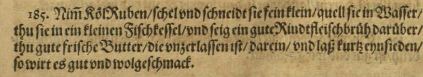 185. Nim̃ KölRuben/schel vnd schneidt sie fein klein/quell sie in Wasser/
thu sie in ein kleinen Fischkessel/vnd seig ein gute Rindtfleischbrüh darüber/
thu gute frische Butter/die vnzerlassen ist/darein/vnd laß kurtz eynsieden/
so wirt es gut vnd wolgeschmack.